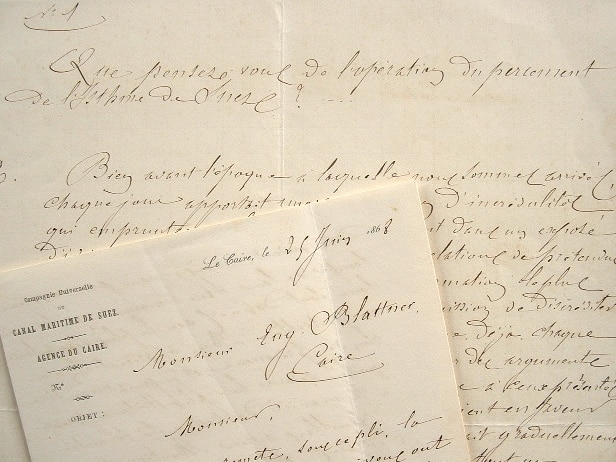 N° 1
Que pensez vous de l'opération du percement
de l'Isthme de Suez ? ....
Bien avant l'époque à laquelle nous sommes arrivés
chaque jour apportait d'incrédulités
qui dans un exposé
relations de prétendus
de
déjà chaque
des arguments
à ceux présentés
en faveur
graduellement
Compagnie Universelle
DU
CANAL MARITIME DE SUEZ.
AGENCE DU CAIRE.
N°
OBJET :
Le Caire, le 25 Juin 1868
Monsieur Eug. Blattner,
Caire
Monsieur,
sous ce pli, la